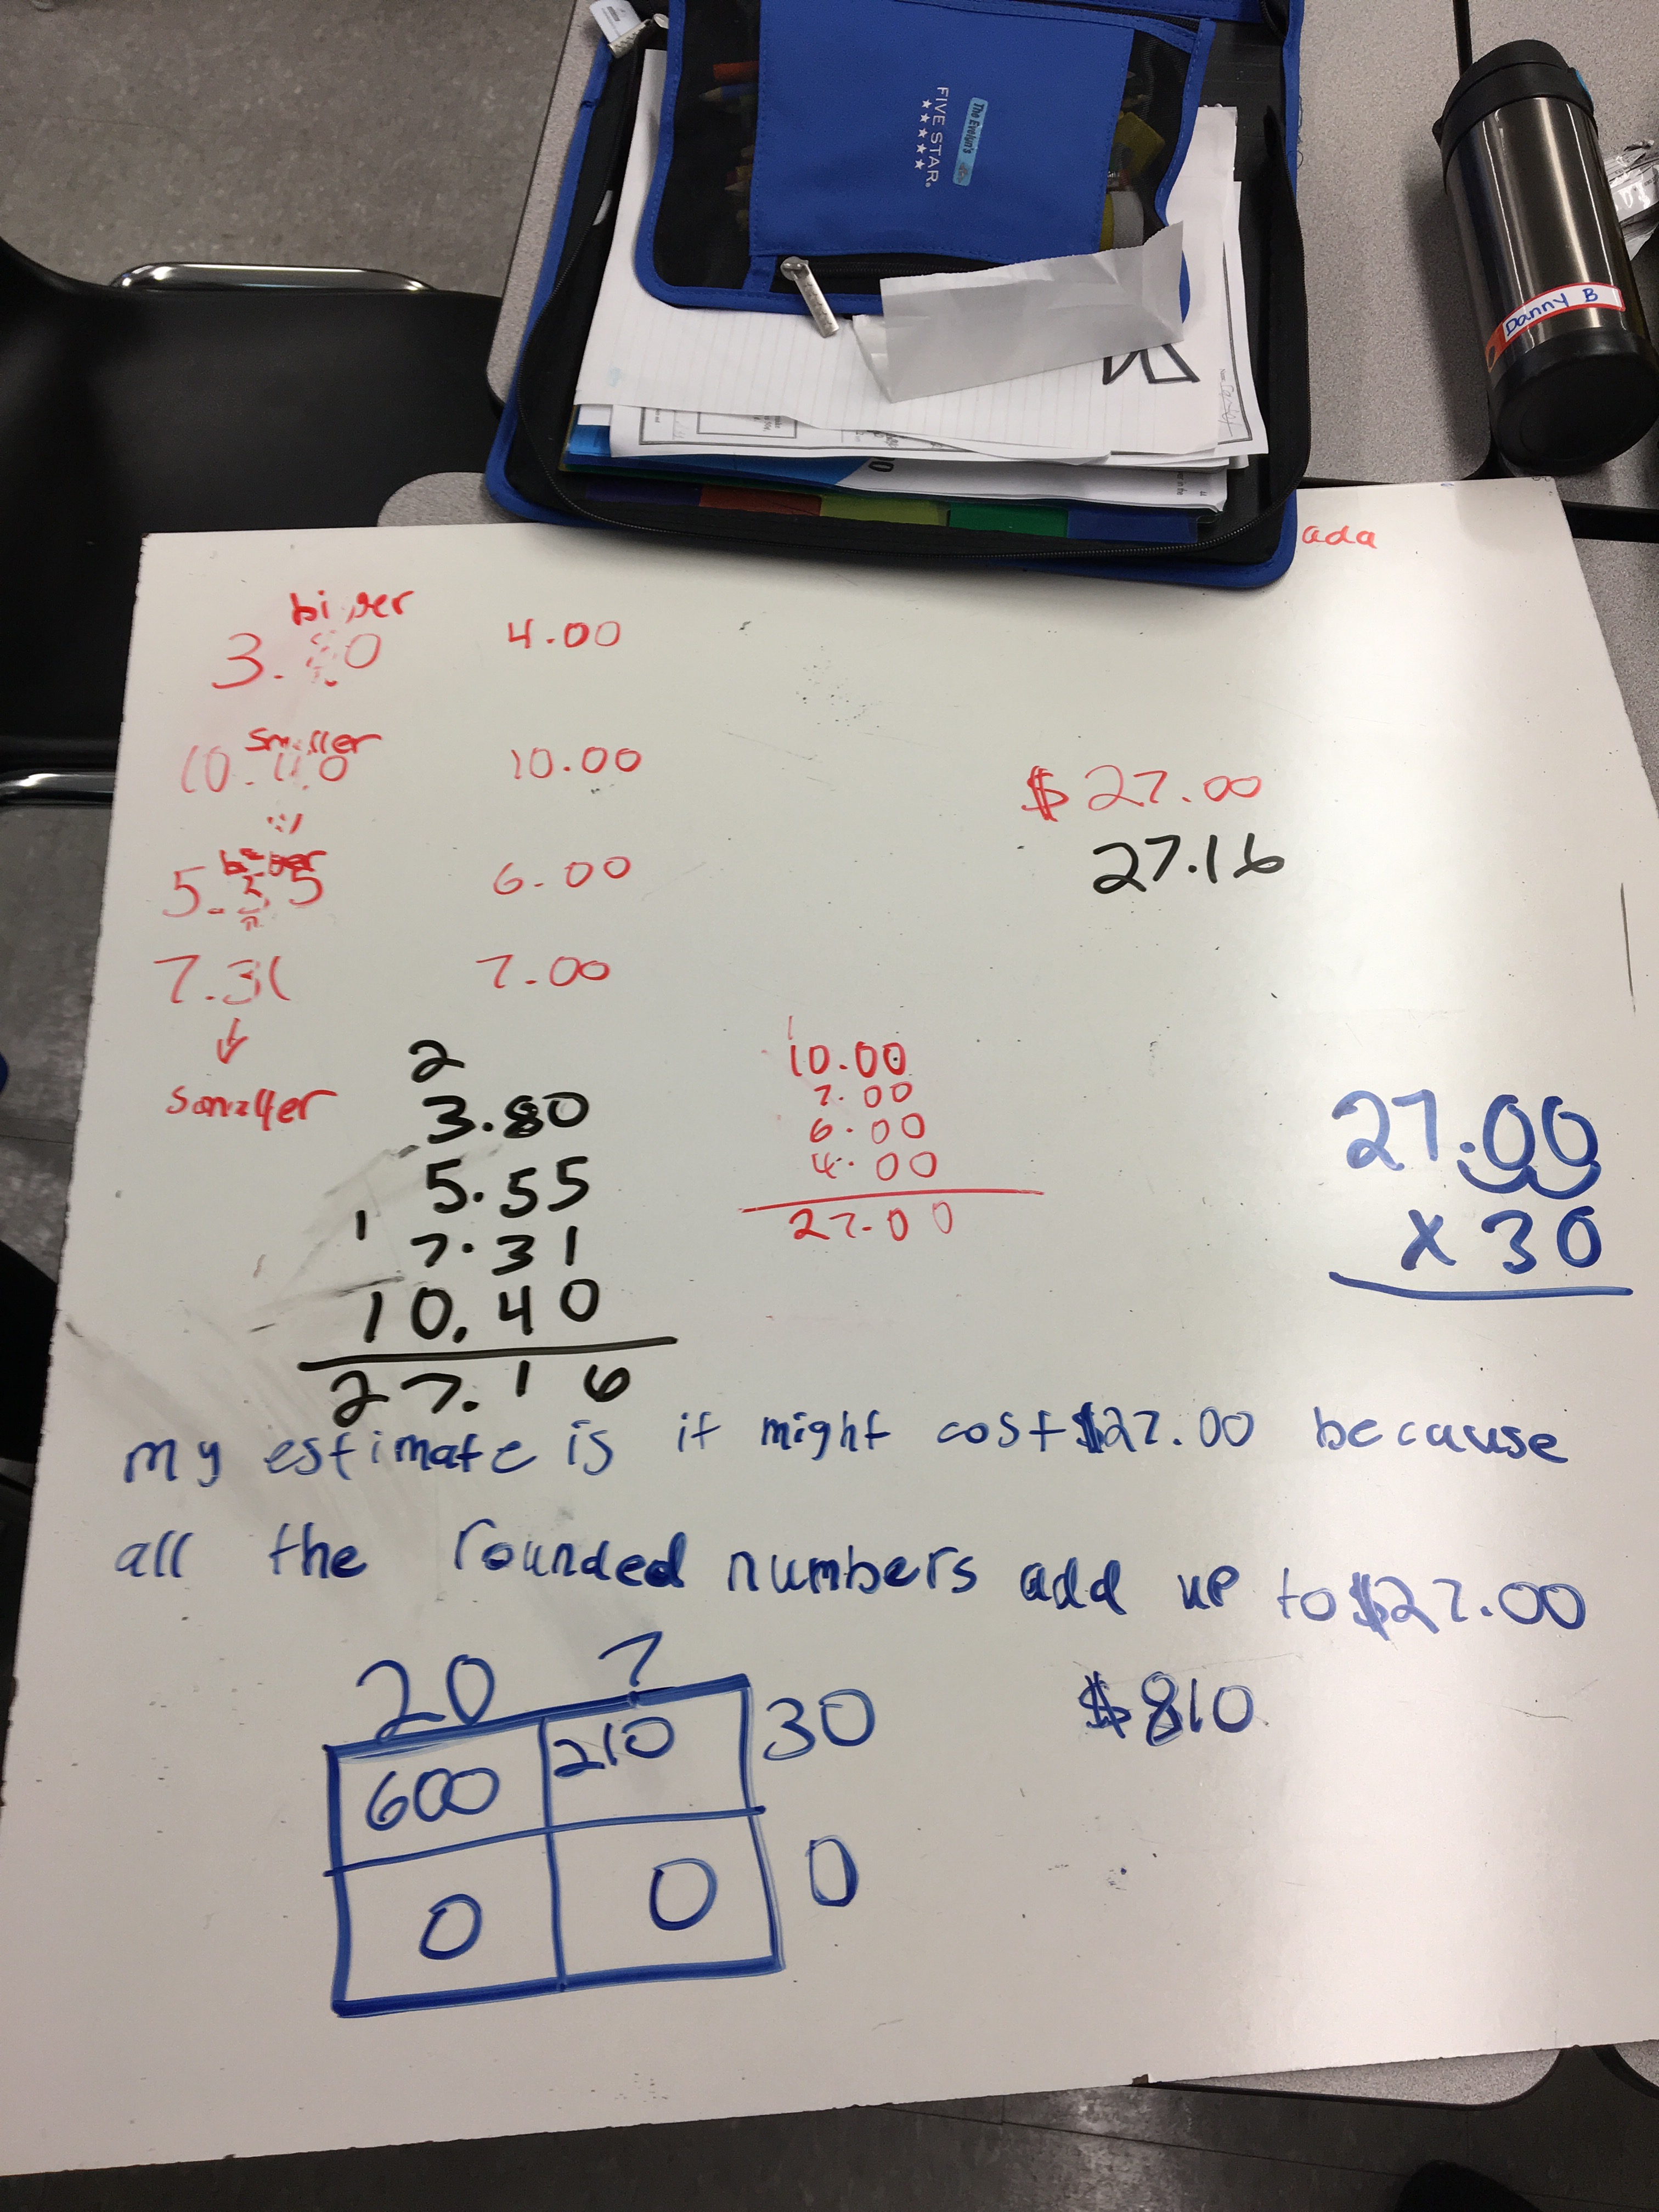 FIVE STAR
The Evelyn's
Danny B
ada
3. 0 4.00
smaller
10. 0 10.00
5. 5 6.00
7.31 7.00
$27.00
27.16
2
3.80
5.55
1 7.31
10.40
27.16
1
10.00
7.00
6.00
4.00
27.00
27.00
x 30
my estimate is it might cost $27.00 because
all the rounded numbers add up to $27.00
20 7
600 210 30
0 0 0
$810